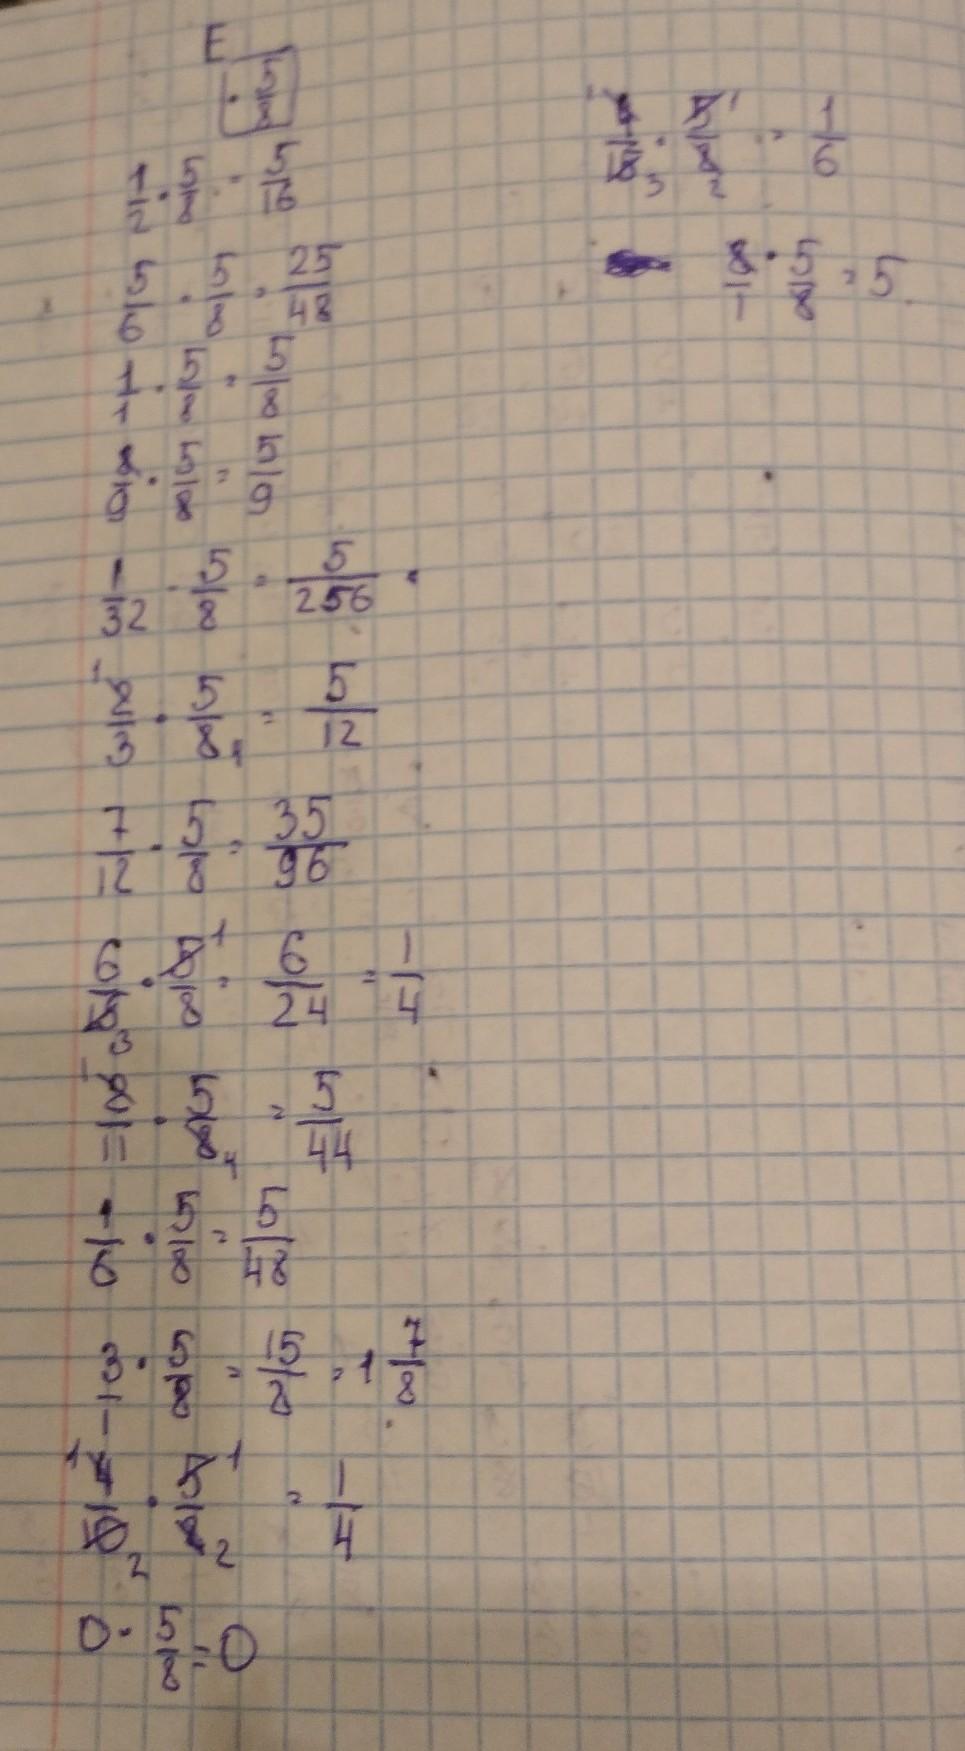 E
· 5/8
1/2 · 5/8 = 5/16
5/6 · 5/8 = 25/48
1/1 · 5/8 = 5/8
8/9 · 5/8 = 5/9
1/32 · 5/8 = 5/256
1 2/3 · 5/8 4 = 5/12
7/12 · 5/8 = 35/96
6/15 3 · 5/8 1 = 6/24 = 1/4
1 /11 · 5/8 4 = 5/44
1/6 · 5/8 = 5/48
3/1 · 5/8 = 15/8 = 1 7/8
1 4/10 2 · 5/8 1 2 = 1/4
0 · 5/8 = 0
1 4/15 3 · 5/8 1 2 = 1/6
8/1 · 5/8 = 5